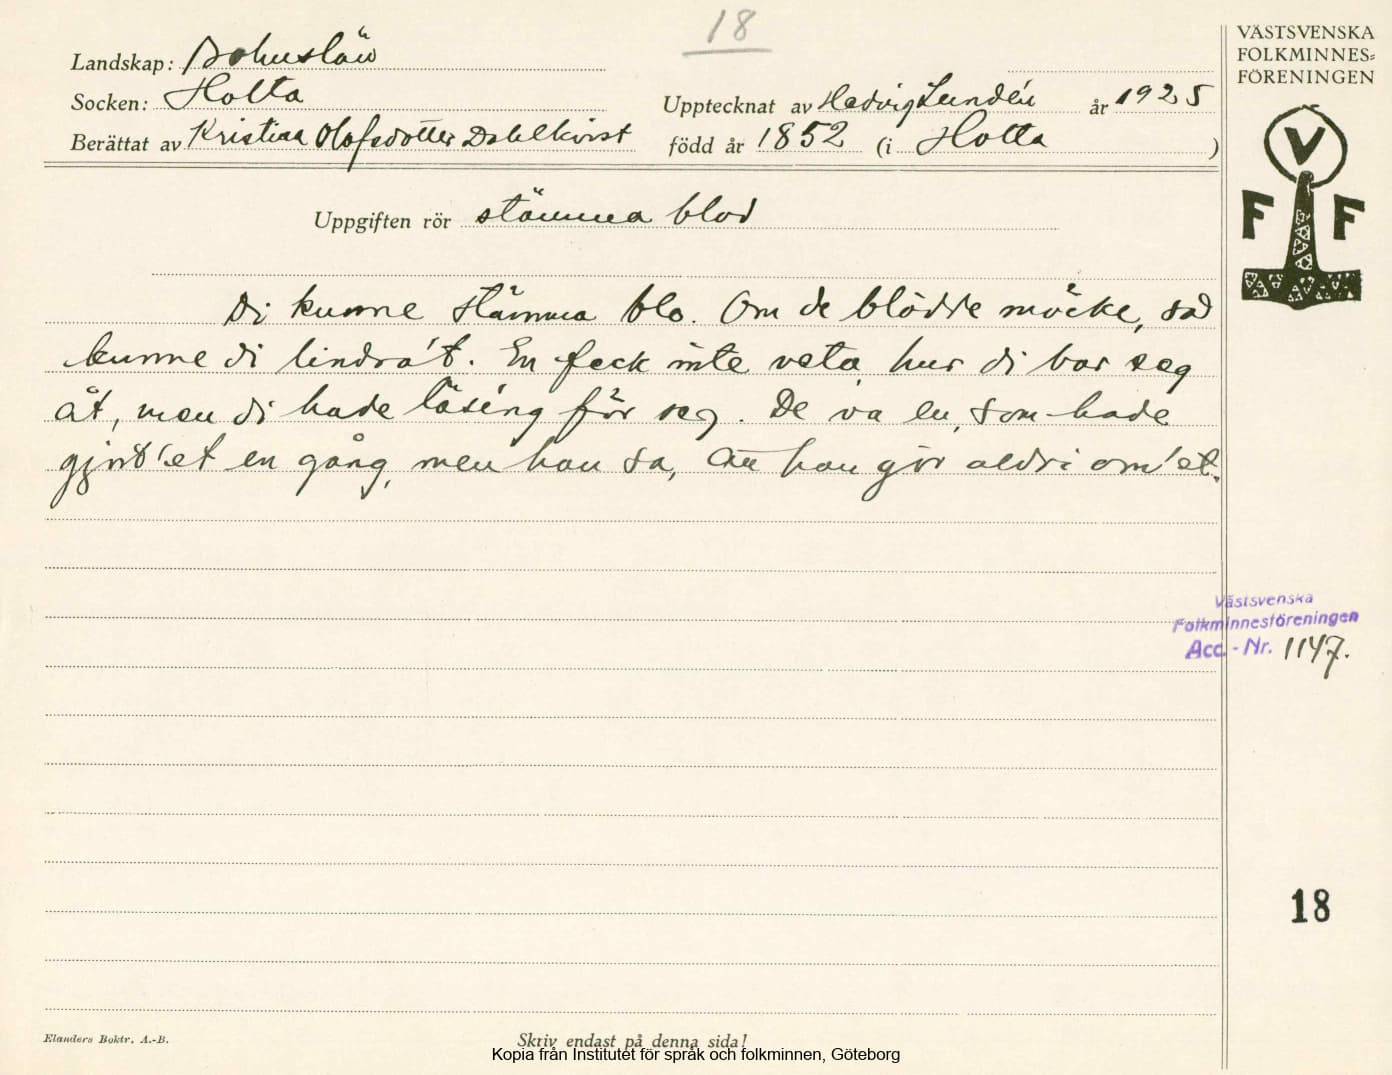 18
VÄSTSVENSKA
FOLKMINNES=
FÖRENINGEN
Landskap: Bohuslän
Socken: Holta
Upptecknat av Hedvig Lundén år 1925
Berättat av Kristina Olofsdotter Dahlkvist
född år 1852 (i Holta )
V
F F
Uppgiften rör stämma blod
Di kunne stämma blo. Om de blödde möcke, så
kunne di lindra't. En feck inte veta, hur di bar seg
åt, men di hade läsing för seg. De va en, som hade
gjort'et en gång, men han sa, att han gör aldri om'et.
Västsvenska
Folkminnesföreningen
Acc. - Nr. 1147.
18
Elanders Boktr. A.-B.
Skriv endast på denna sida!
Kopia från Institutet för språk och folkminnen, Göteborg